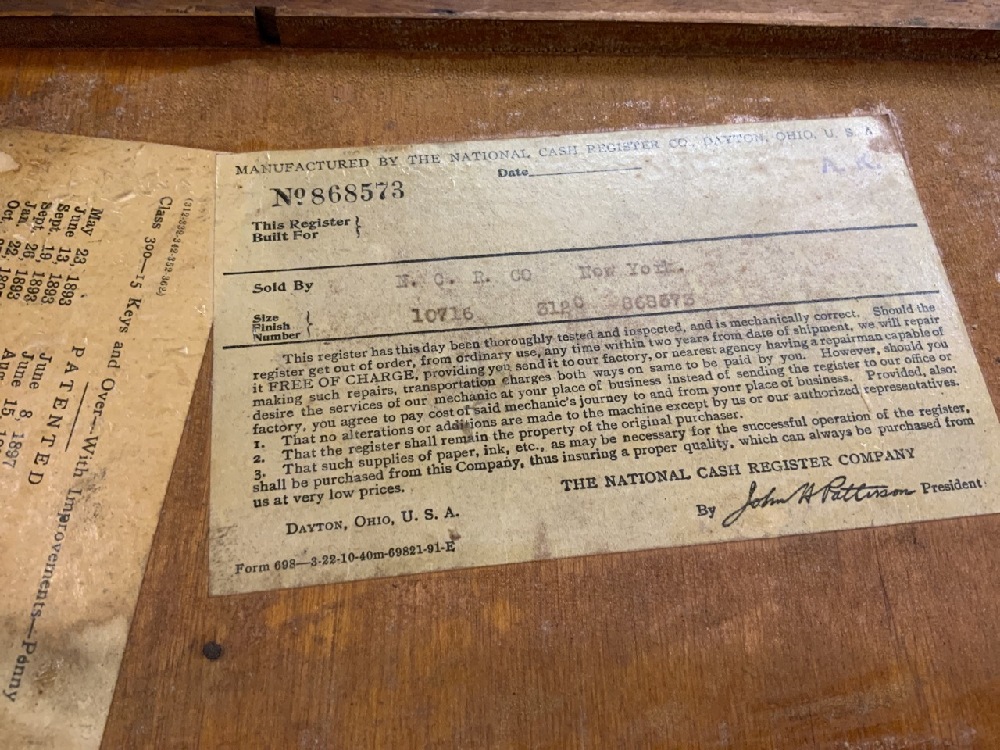 MANUFACTURED BY THE NATIONAL CASH REGISTER CO., DAYTON, OHIO, U. S. A
Date
A. R.
No 868573
This Register }
Built For
Sold By N. C. R. CO New York.
Size
Finish } 10716 3120 868573
Number
This register has this day been thoroughly tested and inspected, and is mechanically correct. Should the
register get out of order, from ordinary use, any time within two years from date of shipment, we will repair
it FREE OF CHARGE, providing you send it to our factory, or nearest agency having a repairman capable of
making such repairs, transportation charges both ways on same to be paid by you. However, should you
desire the services of our mechanic at your place of business instead of sending the register to our office or
factory, you agree to pay cost of said mechanic's journey to and from your place of business. Provided, also:
1. That no alterations or additions are made to the machine except by us or our authorized representatives.
2. That the register shall remain the property of the original purchaser.
3. That such supplies of paper, ink, etc., as may be necessary for the successful operation of the register,
shall be purchased from this Company, thus insuring a proper quality, which can always be purchased from
us at very low prices.
THE NATIONAL CASH REGISTER COMPANY
DAYTON, OHIO, U. S. A.
By John H Patterson President
Form 698—3-22-10-40m-69821-91-E
(312-332-342-352-362)
Class 300—15 Keys and Over—With Improvements—Penny
PATENTED
May 23, 1893
June 13, 1893
Sept. 19, 1893
Sept. 26, 1893
Jan. 22, 1895
Oct.
June 8, 1897
June 15,